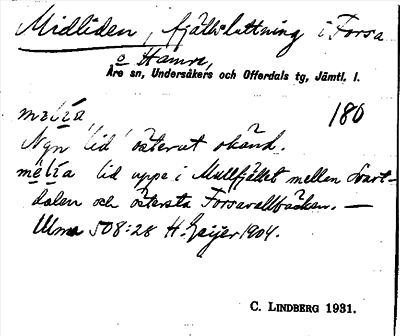 Midliden, fjällsluttning i Forsa
o Hamre,
Åre sn, Undersåkers och Offerdals tg, Jämtl. l.
180
melìa,
Ngn 'lid' österut okänd.
melìa lid uppe i Mullfjället mellan Svart-
dalen och östersta Forsavallbäcken. —
Ulma 508:28 H. Geijer 1904.
C. LINDBERG 1931.